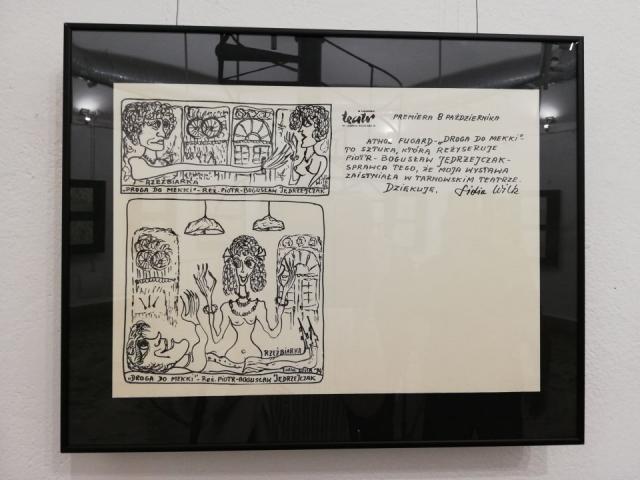 RZEŹBIARKA
„DROGA DO MEKKI” - REŻ. PIOTR-BOGUSŁAW JĘDRZEJCZAK
RZEŹBIARKA
„DROGA DO MEKKI” - REŻ. PIOTR-BOGUSŁAW JĘDRZEJCZAK
teatr
PREMIERA 8 PAŹDZIERNIKA
ATHOL FUGARD - „DROGA DO MEKKI” -
TO SZTUKA, KTÓRĄ REŻYSERUJE
PIOTR - BOGUSŁAW JĘDRZEJCZAK -
SPRAWCA TEGO, ŻE MOJA WYSTAWA
ZAISTNIAŁA W TARNOWSKIM TEATRZE.
DZIĘKUJĘ. Lidia Wilk